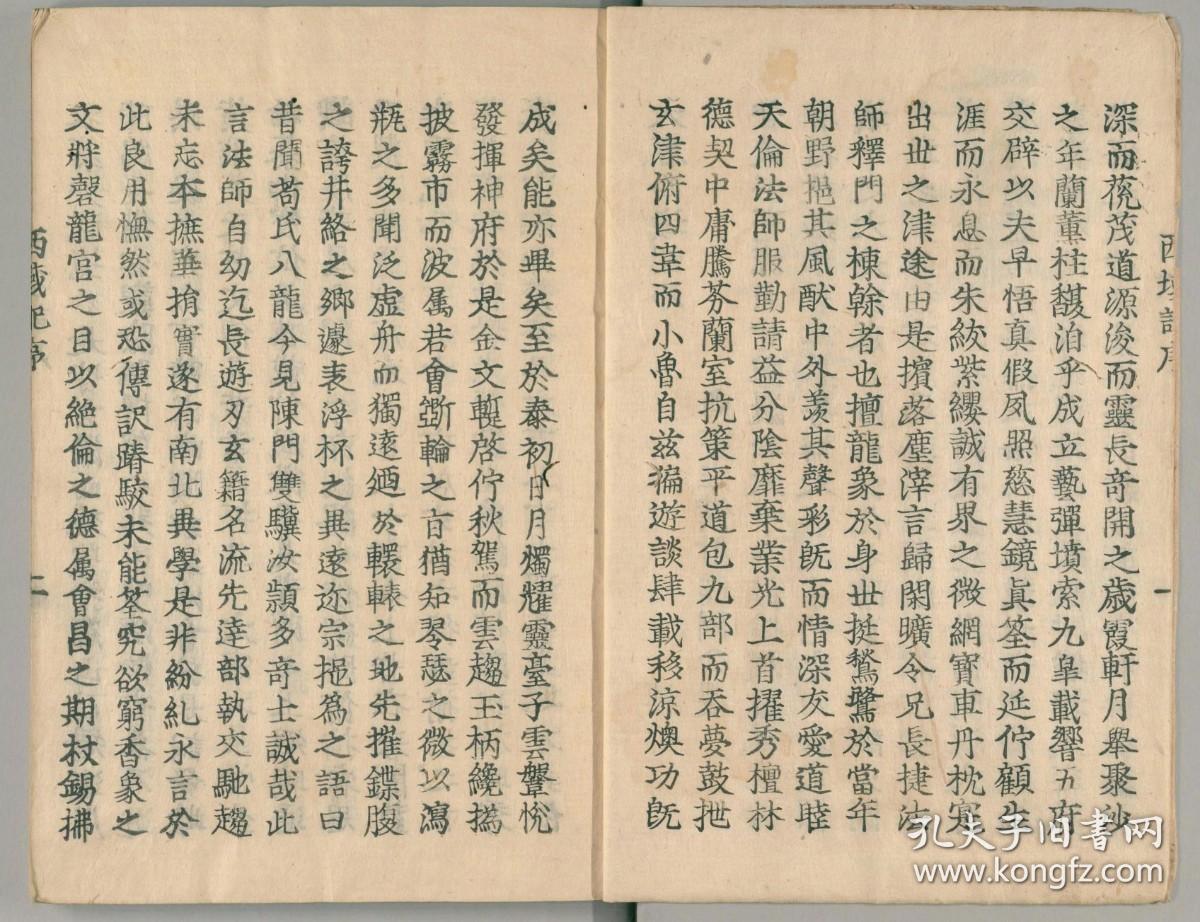 西域記序
一
深而蓯茂道源浚而靈長奇開之歲霞軒月舉聚沙
之年蘭薰桂馥洎乎成立藝殫墳索九皐載響五府
交辟以夫早悟真假夙照慈慧鏡真筌而延佇顧生
涯而永息而朱紱紫纓誠有界之微網寶車丹枕寔
出世之津途由是擯落塵滓言歸閑曠令兄長捷法
師釋門之棟幹者也擅龍象於身世挺鶖鷺於當年
朝野挹其風猷中外羨其聲彩既而情深友愛道睦
天倫法師服勤請益分陰靡棄業光上首擢秀檀林
德契中庸騰芬蘭室抗策平道包九部而吞夢鼓枻
玄津俯四韋而小魯自茲遍遊談肆載移涼燠功既
成矣能亦畢矣至於泰初日月燭耀靈臺子雲鞶帨
發揮神府於是金文蹔啓佇秋駕而雲趨玉柄纔撝
披霧市而波属若會斲輪之旨猶知琴瑟之微以瀉
瓶之多聞泛虛舟而獨遠迺於轘轅之地先摧鍱腹
之誇井絡之鄉遽表浮杯之異遠迩宗挹為之語曰
昔聞荀氏八龍今見陳門雙驥汝頴多奇士誠哉此
言法師自幼迄長遊刃玄籍名流先達部執交馳趨
末忘本摭華捐實遂有南北異學是非紛糺永言於
此良用憮然或恐傳訳踳駮未能筌究欲窮香象之
文將罄龍宮之目以絕倫之德属會昌之期杖錫拂
西域記序
二
孔夫子旧书网
www.kongfz.com